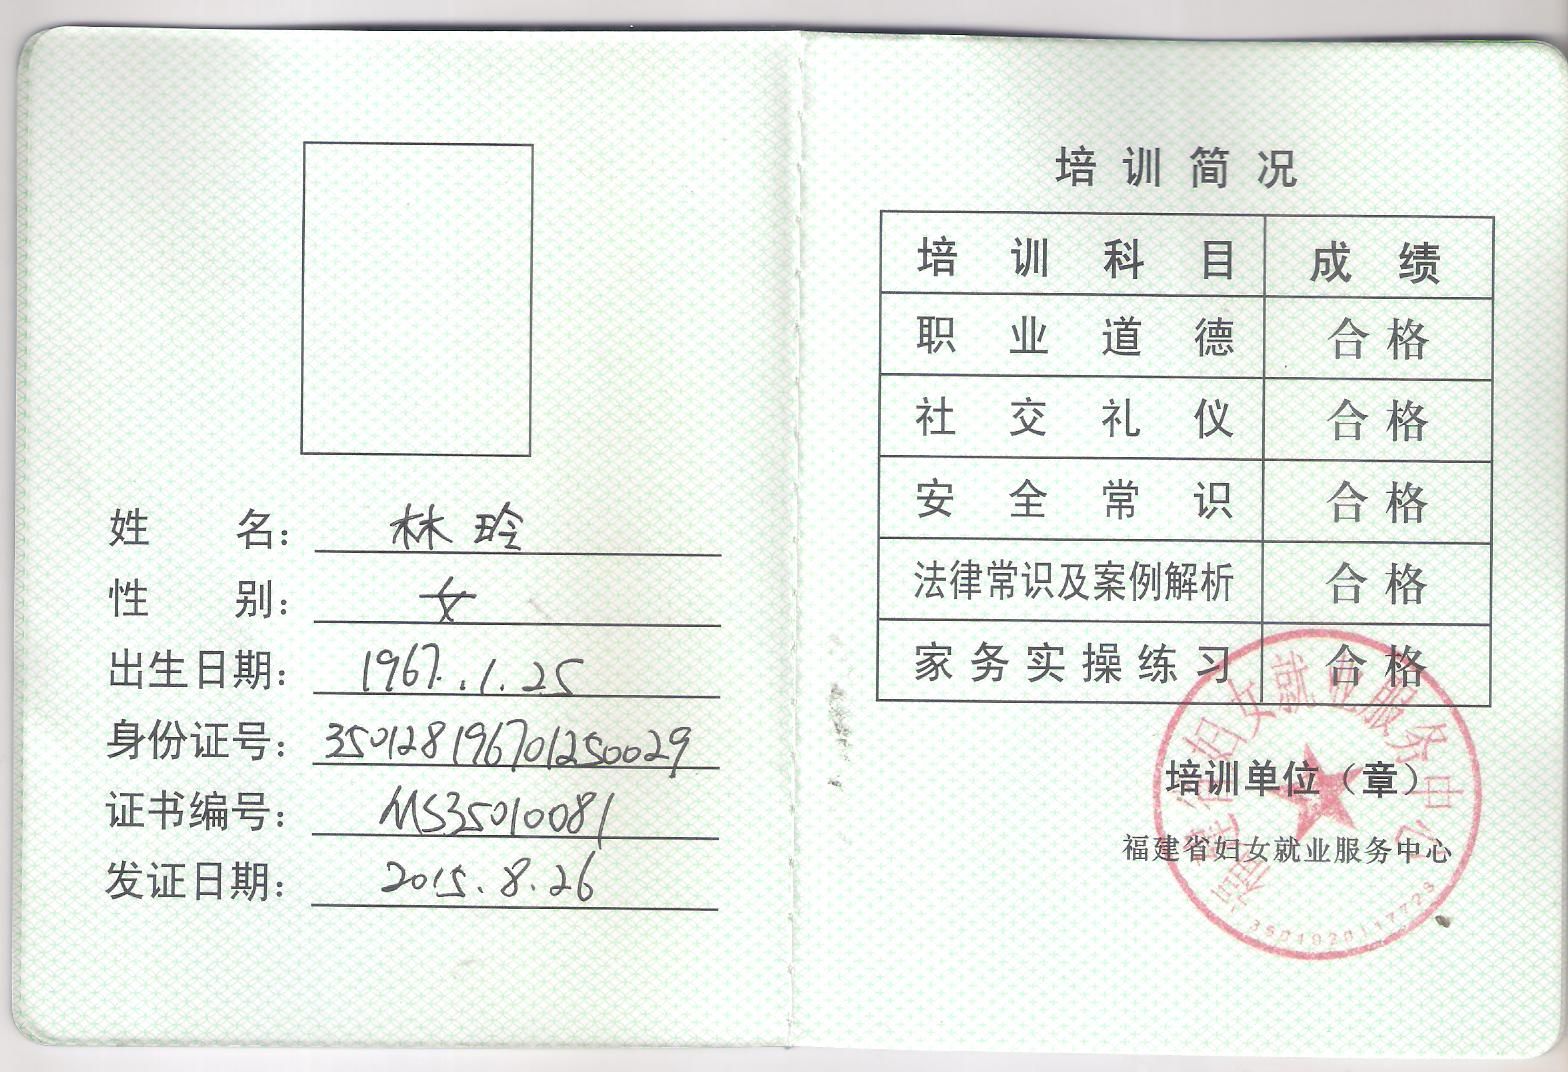 姓名：林玲
性别：女
出生日期：1967.1.25
身份证号：350128196701250029
证书编号：MS35010081
发证日期：2015.8.26
培训简况
培训科目 成绩
职业道德 合格
社交礼仪 合格
安全常识 合格
法律常识及案例解析 合格
家务实操练习 合格
培训单位（章）
福建省妇女就业服务中心
福建省妇女就业服务中心
3501020117723